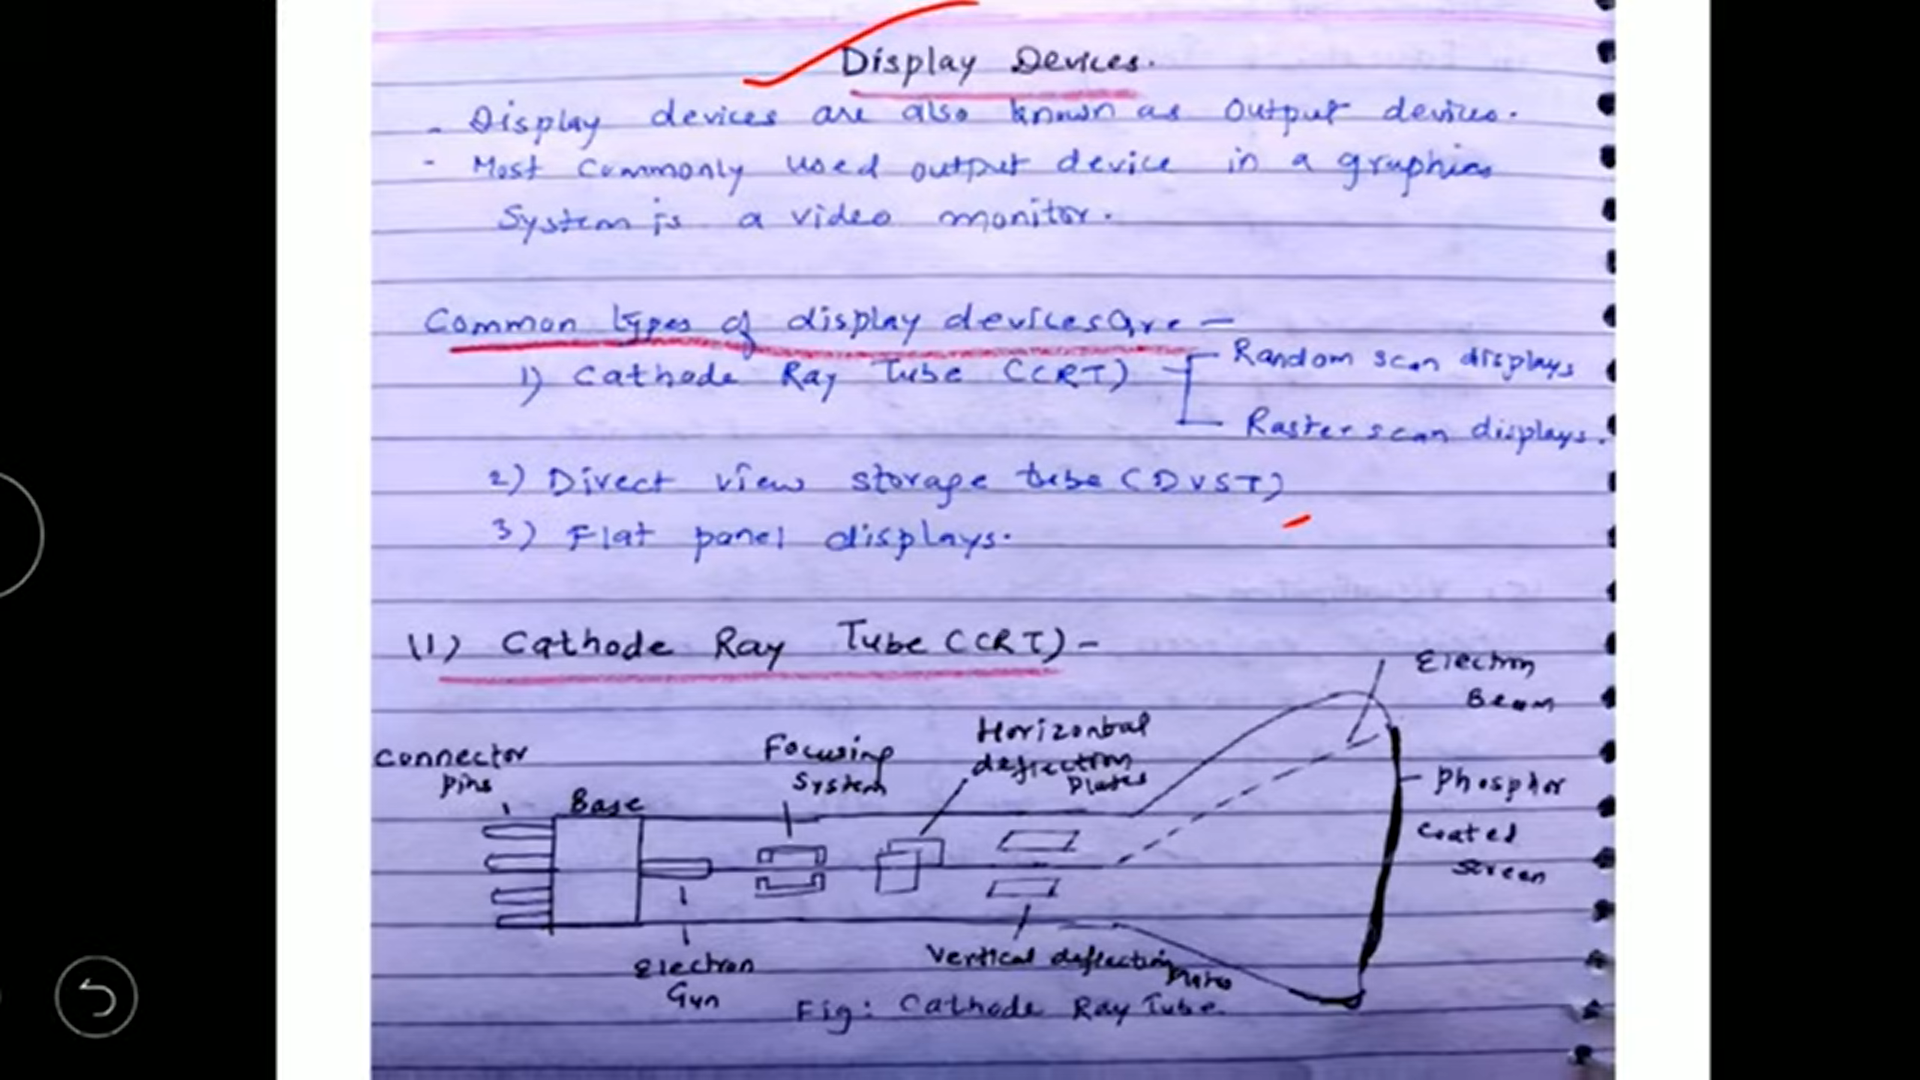 Display Devices.
- Display devices are also known as output devices.
- Most Commonly used output device in a graphics
System is a video monitor.
Common types of display devices are -
1) Cathode Ray Tube (CRT)
Random scan displays
Raster scan displays.
2) Direct view storage tube (DVST)
3) Flat panel displays.
(1) Cathode Ray Tube (CRT) -
Electron
Beam
Connector
pins
Base
Focusing
System
Horizontal
deflection
Plates
Phosphor
Coated
Screen
Electron
Gun
Vertical deflection
Plates
Fig: Cathode Ray Tube.